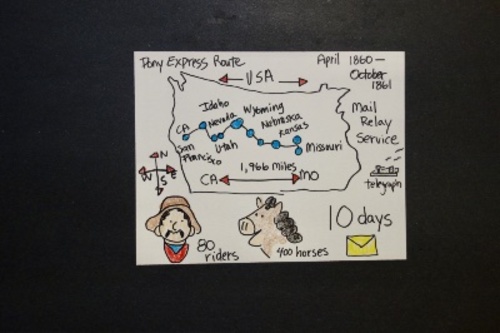 Pony Express Route
April 1860 —
October
1861
USA
Idaho
Wyoming
Nevada
Nebraska
CA
Kansas
San
Francisco
Utah
Missouri
Mail
Relay
Service
1,966 miles
CA
MO
N
W
E
S
telegraph
10 days
80
riders
400 horses